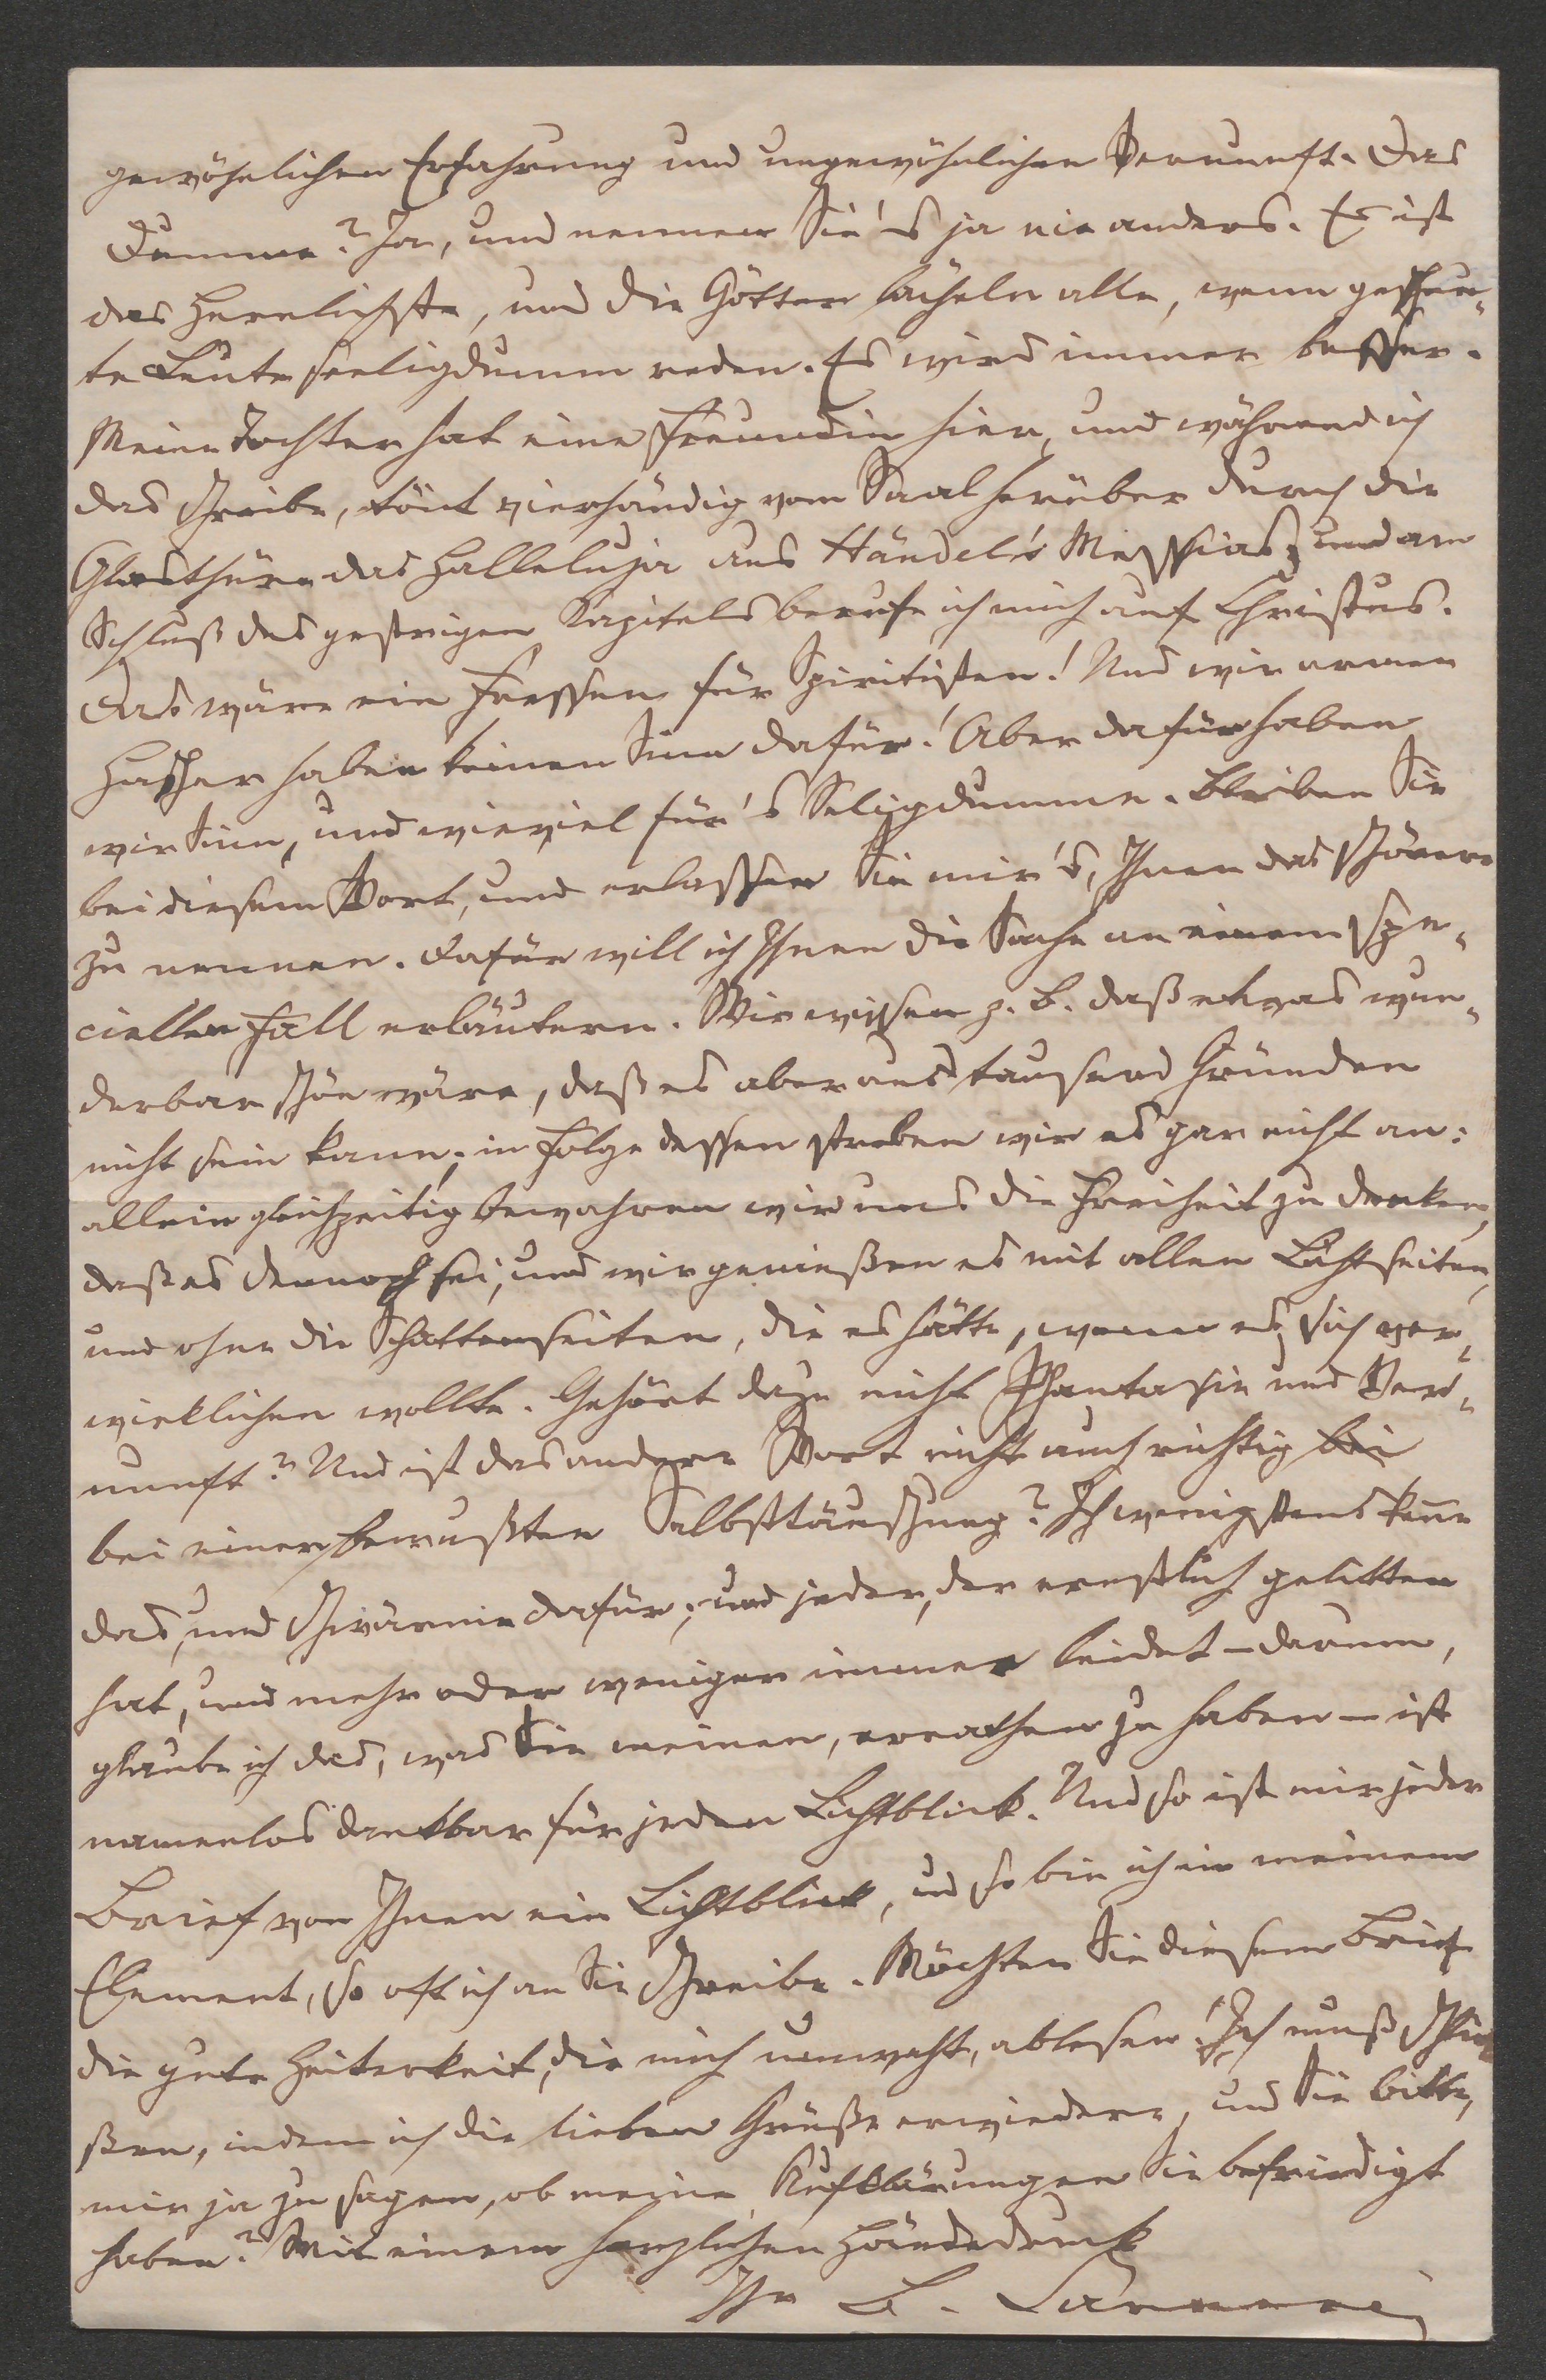 gewöhnlichen Erfahrung und ungewöhnlichen Vernunft. Das
Dumme? Ja, und nennen Sie's ja nie anders. Es ist
das Herrlichste, und die Götter lächeln alle, wenn gescheu-
te Leute seeligdumm reden. Es wird immer besser.
Meine Tochter hat eine Freundin hier, und während ich
das schreibe, tönt vierhändig vom Saal herüber durch die
Glasthüre das Halleluja aus Händel's Messias; und am
Schluß des gestrigen Kapitels berufe ich mich auf Christus.
Das wäre ein Fressen für Spiritisten! Und wir armen
Hascher haben keinen Sinn dafür! Aber dafür haben
wir Sinn, und wieviel für's Seligdumme. Bleiben Sie
bei diesem Wort, und erlassen Sie mir's, Ihnen das schönere
zu nennen. Dafür will ich Ihnen die Sache an einem spe-
ciellen Fall erläutern. Wir wissen z. B. daß etwas wun-
derbar schön wäre, daß es aber aus tausend Gründen
nicht sein kann; in Folge dessen streben wir es gar nicht an:
allein gleichzeitig bewahren wir uns die Freiheit zu denken,
daß es dennoch sei, und wir genießen es mit allen Lichtseiten,
und ohne die Schattenseiten, die es hätte, wenn es sich ver-
wirklichen wollte. Gehört dazu nicht Phantasie und Ver-
nunft? Und ist das andere Wort nicht auch richtig bei
bei einer bewußten Selbsttäuschung? Ich wenigstens kenne
das, und schwärme dafür; und jeder, der ernstlich gelitten
hat, und mehr oder weniger immer leidet – darum,
glaube ich das, was Sie meinen, errathen zu haben – ist
namenlos dankbar für jeden Lichtblick. Und so ist mir jeder
Brief von Ihnen ein Lichtblick, und so bin ich in meinem
Element, so oft ich an Sie schreibe. Möchten Sie diesem Brief
die gute Heiterkeit, die mich umweht, ablesen! Ich muß schlie-
ßen, indem ich die lieben Grüße erwiedere, und Sie bitte,
mir ja zu sagen, ob meine Aufklärungen Sie befriedigt
haben? Mit einem herzlichen Händedruck
Ihr B. Carneri